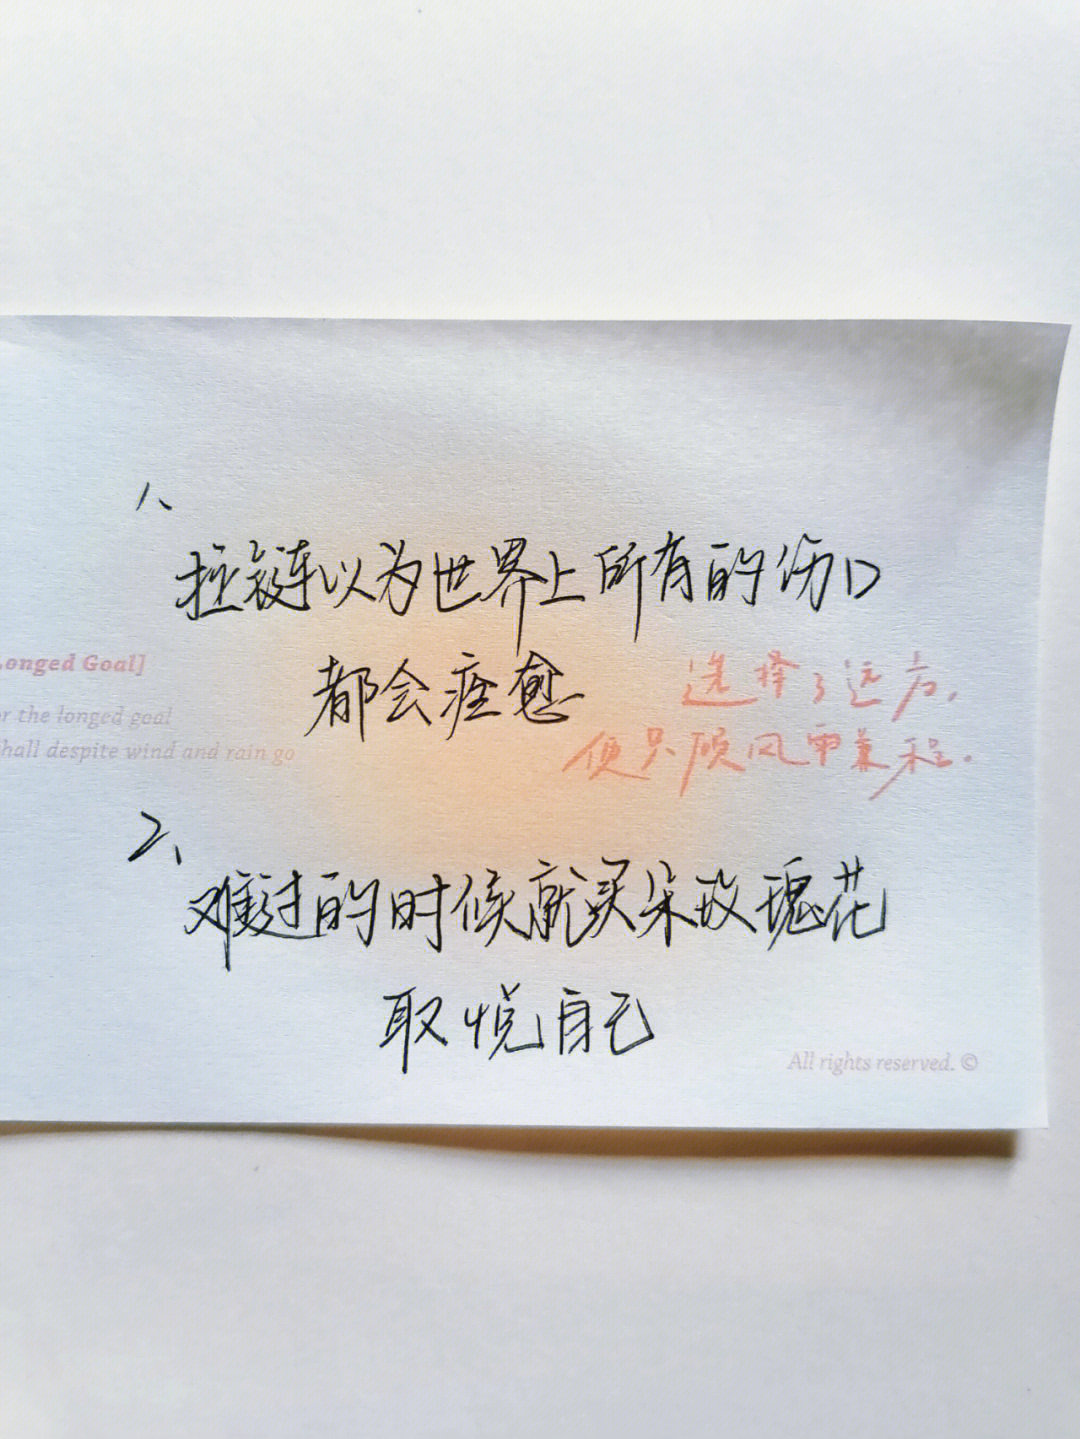 1、
拉链以为世界上所有的伤口
都会痊愈
onged Goal]
选择了远方，
r the longed goal
hall despite wind and rain go
便只顾风雨兼程.
2、
难过的时候就买朵玫瑰花
取悦自己
All rights reserved. ©